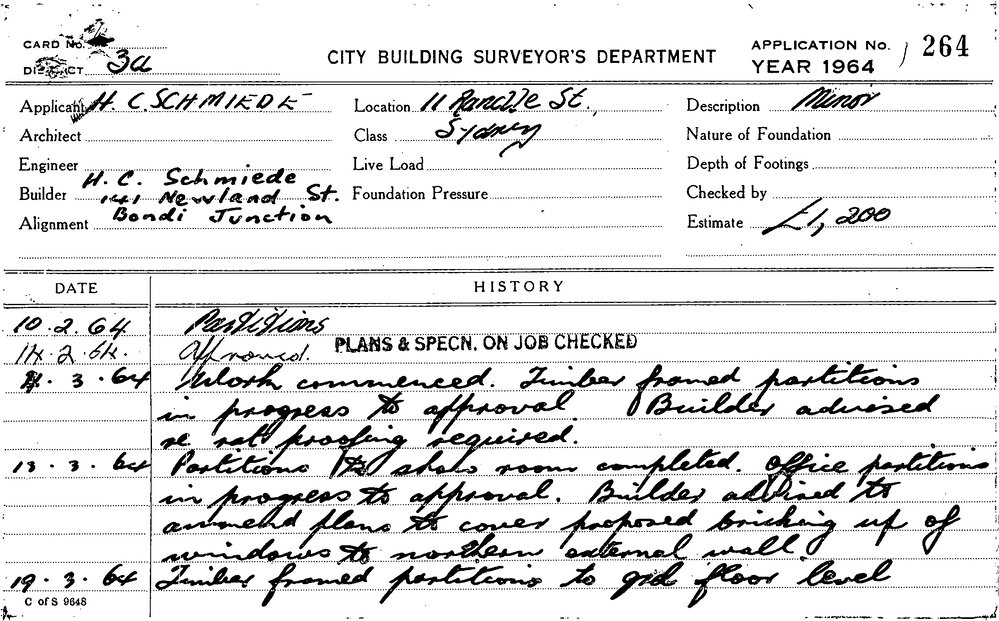 CARD No.
CITY BUILDING SURVEYOR'S DEPARTMENT
APPLICATION No. / 264
DISTRICT 3a
YEAR 1964
Applicant H. C SCHMIEDE
Location 11 St.,
Description Minor
Architect
Class Sydney
Nature of Foundation
Engineer
Live Load
Depth of Footings
Builder H. C. Schmiede
141 Newland St.
Foundation Pressure
Checked by
Alignment Bondi Junction
Estimate £1,200
DATE HISTORY
10.2.64 Partitions
14.2.64. Approved. PLANS & SPECN. ON JOB CHECKED
3.64 Work commenced. Timber framed partitions
in progress to approval Builder advised
re rat proofing required.
13.3.64 Partitions to show room completed. Office partitions
in progress to approval. Builder advised to
ammend plans to cover proposed bricking up of
windows to northern external wall
19.3.64 Timber framed partitions to grd floor level
C of S 9648